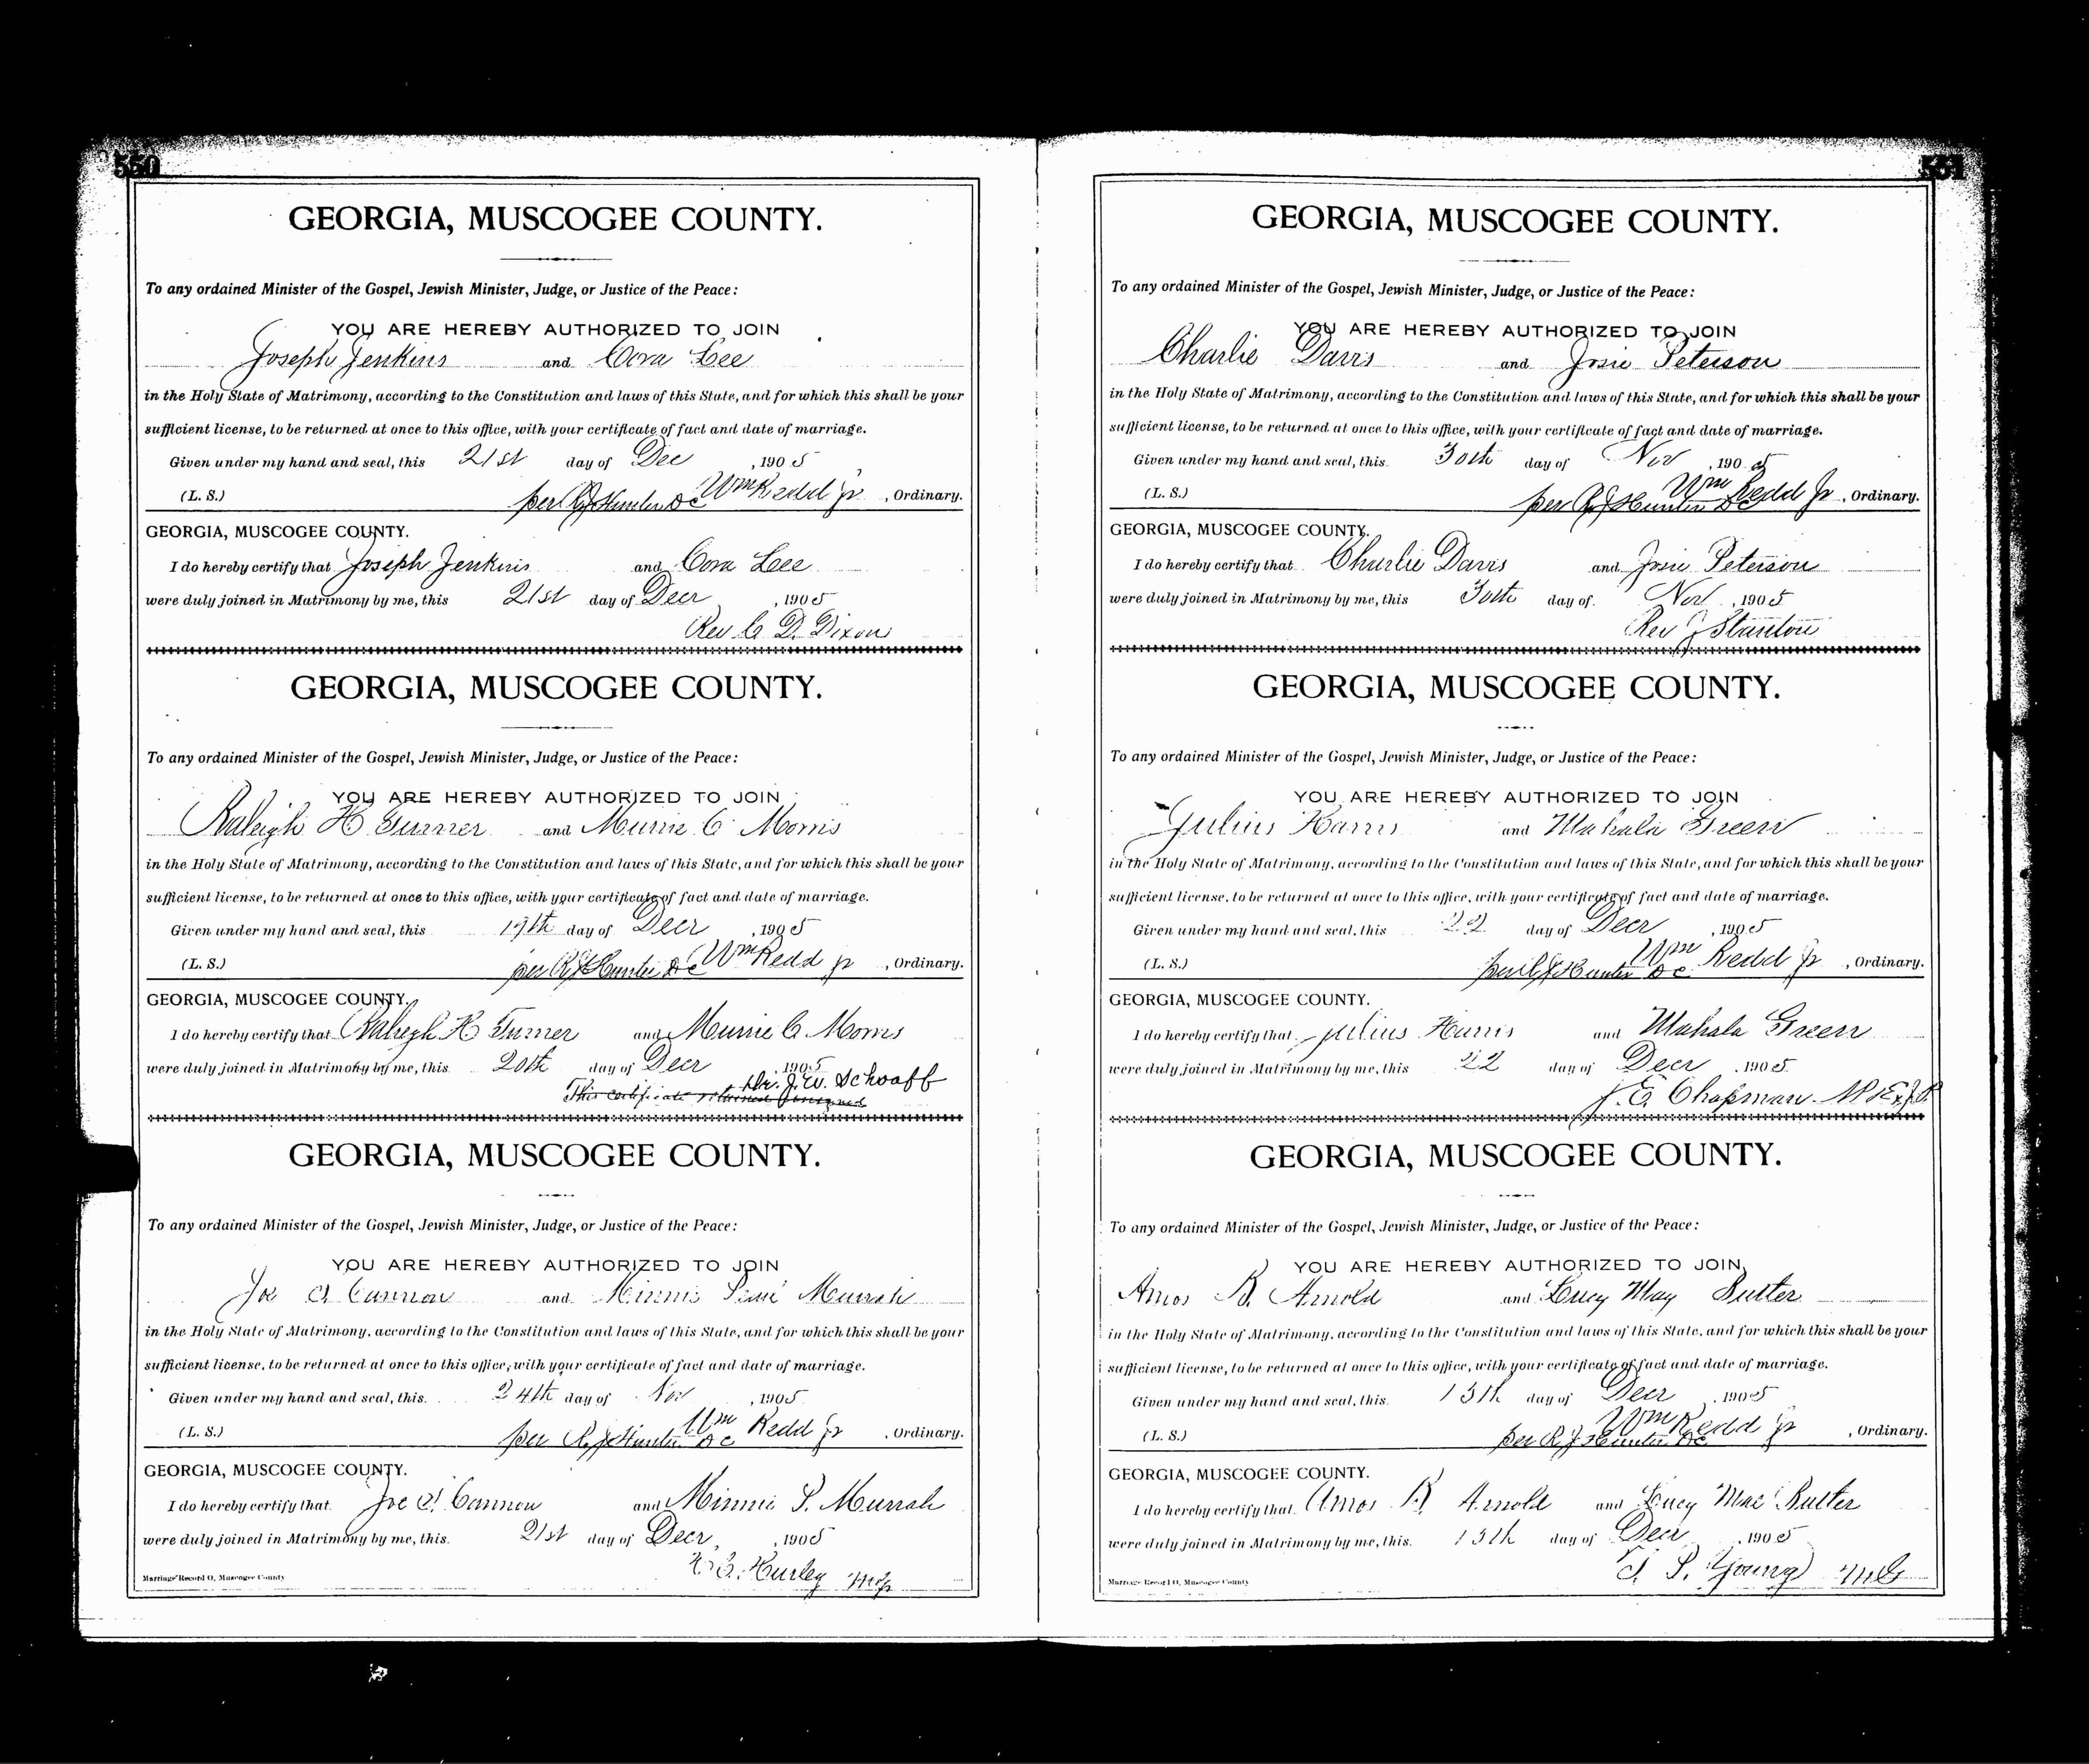 550
GEORGIA, MUSCOGEE COUNTY.
To any ordained Minister of the Gospel, Jewish Minister, Judge, or Justice of the Peace:
YOU ARE HEREBY AUTHORIZED TO JOIN
Joseph Jenkins and Cora Lee
in the Holy State of Matrimony, according to the Constitution and laws of this State, and for which this shall be your
sufficient license, to be returned at once to this office, with your certificate of fact and date of marriage.
Given under my hand and seal, this 21st day of Dec, 1905
(L. S.) per R J Hunter DC Wm Redd Jr, Ordinary.
GEORGIA, MUSCOGEE COUNTY.
I do hereby certify that Joseph Jenkins and Cora Lee
were duly joined in Matrimony by me, this 21st day of Decr, 1905
Rev C D. Dixon
GEORGIA, MUSCOGEE COUNTY.
To any ordained Minister of the Gospel, Jewish Minister, Judge, or Justice of the Peace:
YOU ARE HEREBY AUTHORIZED TO JOIN
Raleigh H Turner and C Morris
in the Holy State of Matrimony, according to the Constitution and laws of this State, and for which this shall be your
sufficient license, to be returned at once to this office, with your certificate of fact and date of marriage.
Given under my hand and seal, this day of Decr, 1905
(L. S.) per R J Hunter DC Wm Redd Jr, Ordinary.
GEORGIA, MUSCOGEE COUNTY.
I do hereby certify that Raleigh H Turner and C. Morris
were duly joined in Matrimony by me, this 20th day of Decr, 1905
This certificate returned unsigned Dr. J. W. Schaaff
GEORGIA, MUSCOGEE COUNTY.
To any ordained Minister of the Gospel, Jewish Minister, Judge, or Justice of the Peace:
YOU ARE HEREBY AUTHORIZED TO JOIN
Joe Cannon and Minnie Murrah
in the Holy State of Matrimony, according to the Constitution and laws of this State, and for which this shall be your
sufficient license, to be returned at once to this office, with your certificate of fact and date of marriage.
Given under my hand and seal, this 24th day of Nov, 1905
(L. S.) per R J Hunter DC Wm Redd Jr, Ordinary.
GEORGIA, MUSCOGEE COUNTY.
I do hereby certify that Joe Cannon and Minnie P. Murrah
were duly joined in Matrimony by me, this 21st day of Decr, 1905
Hurley
Marriage Record O, Muscogee County
551
GEORGIA, MUSCOGEE COUNTY.
To any ordained Minister of the Gospel, Jewish Minister, Judge, or Justice of the Peace:
YOU ARE HEREBY AUTHORIZED TO JOIN
Charlie Davis and Josie Peterson
in the Holy State of Matrimony, according to the Constitution and laws of this State, and for which this shall be your
sufficient license, to be returned at once to this office, with your certificate of fact and date of marriage.
Given under my hand and seal, this 30th day of Nov, 1905
(L. S.) per R J Hunter DC Wm Redd Jr, Ordinary.
GEORGIA, MUSCOGEE COUNTY.
I do hereby certify that Charlie Davis and Josie Peterson
were duly joined in Matrimony by me, this 30th day of Nov, 1905
Rev J Stanton
GEORGIA, MUSCOGEE COUNTY.
To any ordained Minister of the Gospel, Jewish Minister, Judge, or Justice of the Peace:
YOU ARE HEREBY AUTHORIZED TO JOIN
Julius Harris and Mahala Green
in the Holy State of Matrimony, according to the Constitution and laws of this State, and for which this shall be your
sufficient license, to be returned at once to this office, with your certificate of fact and date of marriage.
Given under my hand and seal, this 22 day of Decr, 1905
(L. S.) per R J Hunter DC Wm Redd Jr, Ordinary.
GEORGIA, MUSCOGEE COUNTY.
I do hereby certify that Julius Harris and Mahala Green
were duly joined in Matrimony by me, this 22 day of Decr, 1905
J. E. Chapman
GEORGIA, MUSCOGEE COUNTY.
To any ordained Minister of the Gospel, Jewish Minister, Judge, or Justice of the Peace:
YOU ARE HEREBY AUTHORIZED TO JOIN
Amos B. Arnold and Lucy May Butler
in the Holy State of Matrimony, according to the Constitution and laws of this State, and for which this shall be your
sufficient license, to be returned at once to this office, with your certificate of fact and date of marriage.
Given under my hand and seal, this 13th day of Decr, 1905
(L. S.) per R J Hunter DC Wm Redd Jr, Ordinary.
GEORGIA, MUSCOGEE COUNTY.
I do hereby certify that Amos B Arnold and Lucy Mae Butler
were duly joined in Matrimony by me, this 13th day of Decr, 1905
P. Young MG
Marriage Record O, Muscogee County